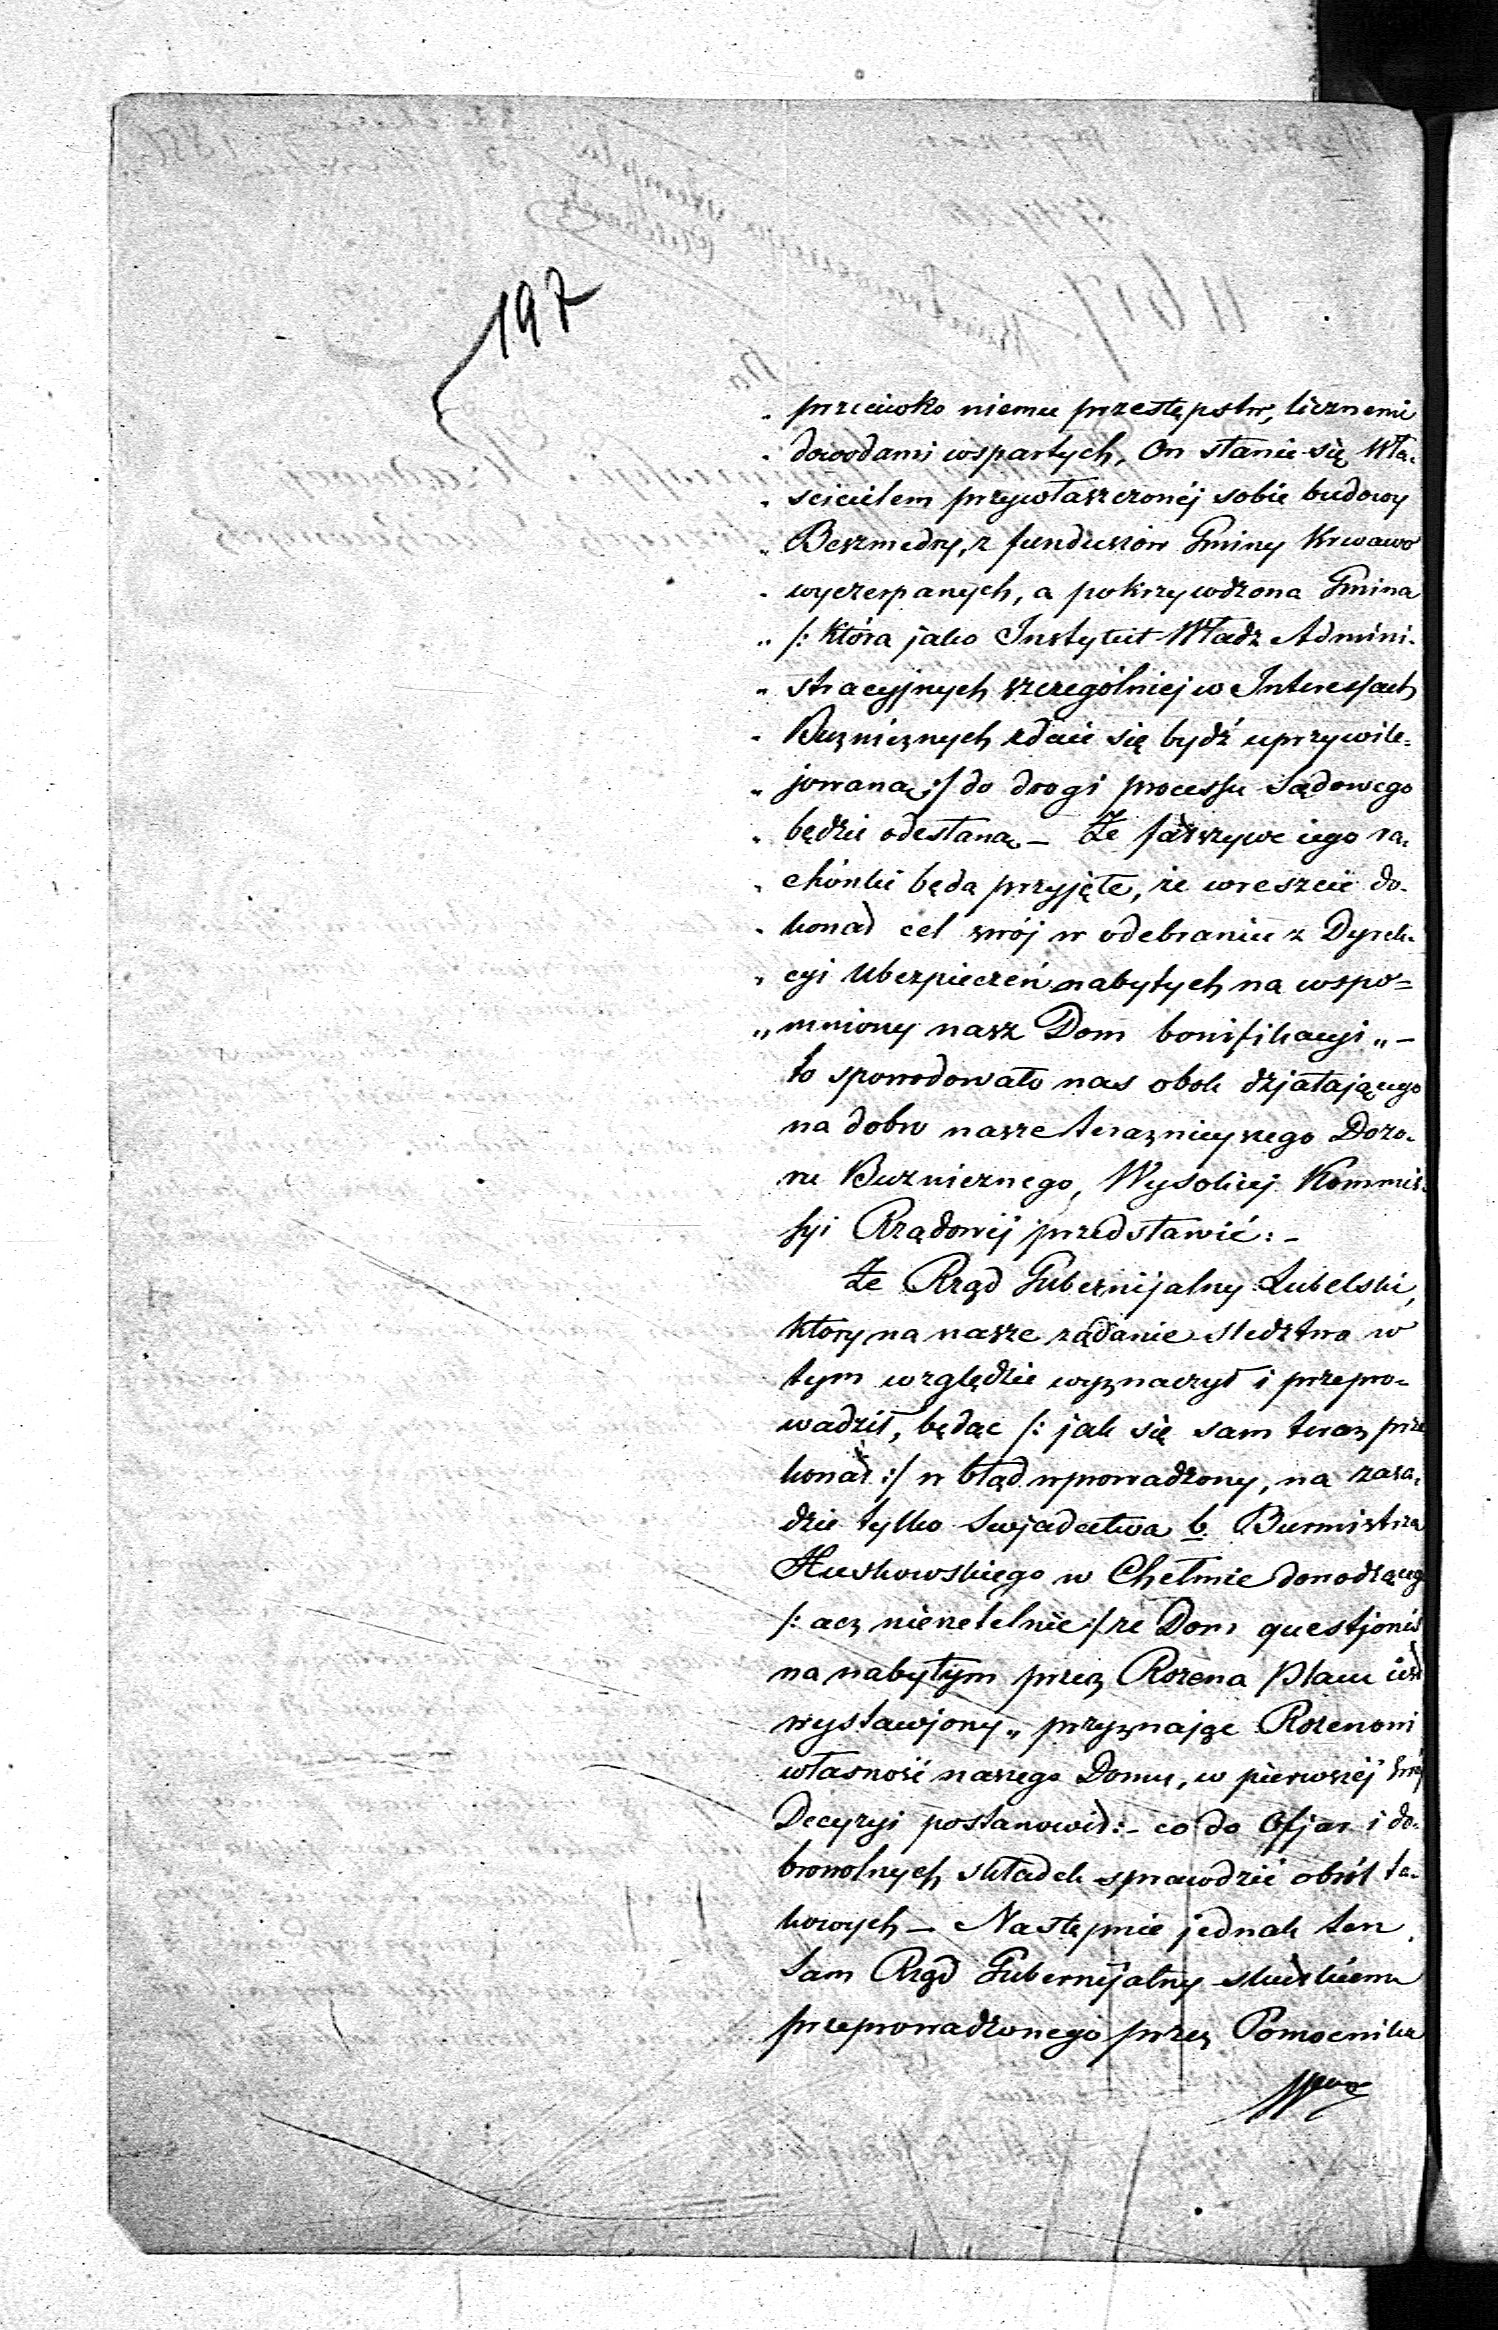 197
„ przeciwko niemu przestępstw, licznemi
„ dowodami wspartych, On stanie się Wła-
„ scicielem przywłaszczonéj sobie budowy
„ Beszmedry, z funduszów Gminy Krwawo
„ wyczerpanych, a pokrzywdzona Gmina
„ /: która jako Instytut Władz Admini-
„ stracyjnych szczególniej w Interessach
„ Bużnicznych zdaie się bydź uprzywile-
„ jowaną :/ do drogi processu Sądowego
„ będzie odesłaną – Że fałszywe iego ra-
„ chónki będą przyjęte, że wreszcie do-
„ konał cel swój w odebraniu z Dyrek-
„ cyi Ubezpieczeń nabytych na wspo-
„ mniony nasz Dom bonifikacyi „ –
to spowodowało nas obok działającego
na dobro nasze teraznieyszego Dozo-
ru Bużnicznego, Wysokiej Kommis-
syi Rządowéj przedstawić: –
Że Rząd Gubernijalny Lubelski,
który na nasze rządanie sledztwo w
tym względzie wyznaczył i przepro-
wadził, będąc /: jak się sam teraz prze
konał :/ w błąd wprowadzony, na zasa-
dzie tylko świadectwa b. Burmistrza
Huskowskiego w Chełmie donodzącego
/: acz nierzetelnie :/ że Dom questjonis
na nabytym przez Rozena placu iest
wystawjony „ przyznając Rozenowi
własność naszego Domu, w pierwszéj swéj
Decyzyi postanowił: – co do Ofjar i do-
browolnych składek sprawdzić obrót ta-
kowych – Następnie jednak ten
sam Rząd Gubernijalny skutkiem
przeprowadzonego przez Pomocnika